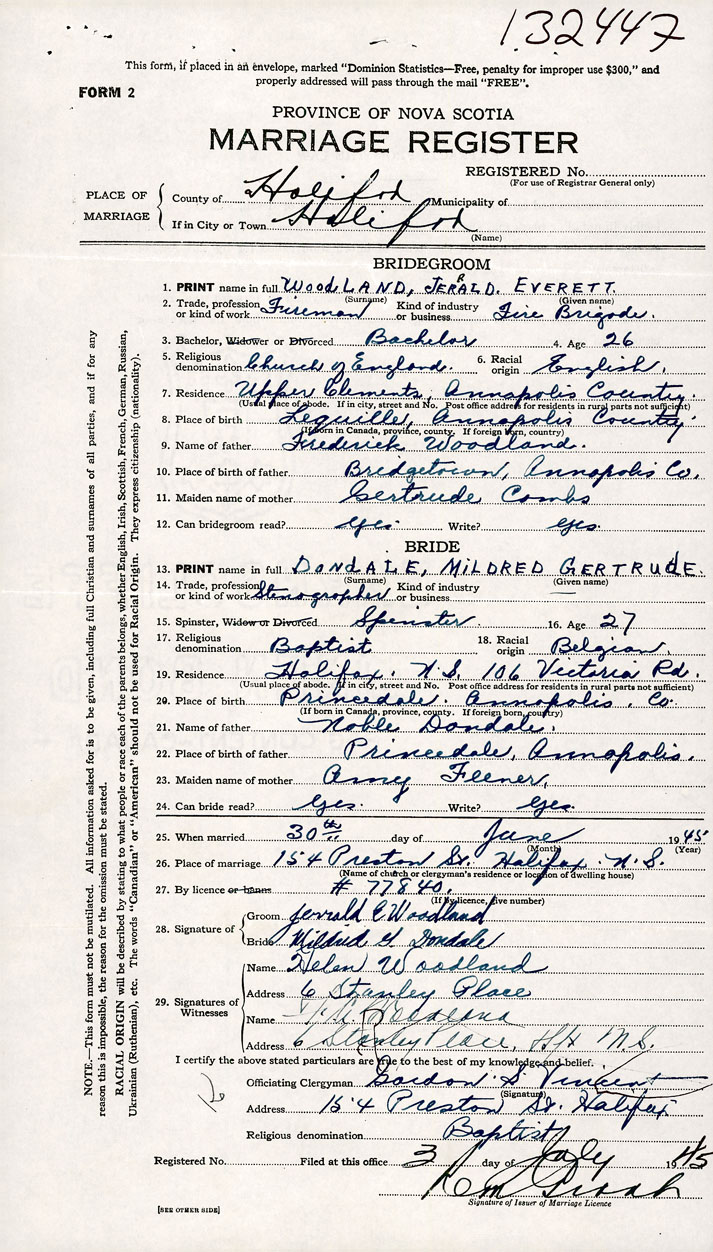 132447
This form, if placed in an envelope, marked "Dominion Statistics—Free, penalty for improper use $300," and
properly addressed will pass through the mail "FREE".
FORM 2
PROVINCE OF NOVA SCOTIA
MARRIAGE REGISTER
REGISTERED No.
(For use of Registrar General only)
PLACE OF MARRIAGE
County of Halifax Municipality of
If in City or Town Halifax
(Name)
BRIDEGROOM
1. PRINT name in full WOODLAND, JERALD. EVERETT.
(Surname) (Given name)
2. Trade, profession or kind of work Fireman Kind of industry or business Fire Brigade.
3. Bachelor, Widower or Divorced Bachelor 4. Age 26
5. Religious denomination Church of England. 6. Racial origin English.
7. Residence Upper Clements, Annapolis County.
(Usual place of abode. If in city, street and No. Post office address for residents in rural parts not sufficient)
8. Place of birth Lequille, Annapolis County
(If born in Canada, province, county. If foreign born, country)
9. Name of father Frederick Woodland.
10. Place of birth of father Bridgetown, Annapolis Co.
11. Maiden name of mother Gertrude Combs
12. Can bridegroom read? Yes. Write? Yes.
BRIDE
13. PRINT name in full DONDALE, MILDRED GERTRUDE.
(Surname) (Given name)
14. Trade, profession or kind of work Stenographer Kind of industry or business
15. Spinster, Widow or Divorced Spinster. 16. Age 27
17. Religious denomination Baptist 18. Racial origin Belgian.
19. Residence Halifax. N.S. 106 Victoria Rd.
(Usual place of abode. If in city, street and No. Post office address for residents in rural parts not sufficient)
20. Place of birth Princedale. Annapolis. Co.
(If born in Canada, province, county. If foreign born, country)
21. Name of father Noble Dondale.
22. Place of birth of father Princedale, Annapolis.
23. Maiden name of mother Amy Feener,
24. Can bride read? Yes. Write? Yes.
25. When married 30th day of June 1945
(Month) (Year)
26. Place of marriage 154 Preston St. Halifax. N.S.
(Name of church or clergyman's residence or location of dwelling house)
27. By licence or banns # 77840.
(If by licence, give number)
28. Signature of
Groom Jerrald E Woodland
Bride Mildred G Dondale
29. Signatures of Witnesses
Name Helen Woodland
Address 6 Stanley Place
Name
Address 6 Stanley Place, Hfx N.S.
I certify the above stated particulars are true to the best of my knowledge and belief.
Officiating Clergyman Gordon S. Vincent
(Signature)
Address 154 Preston St. Halifax
Religious denomination Baptist
Registered No. Filed at this office 3 day of July 1945
Signature of Issuer of Marriage Licence
[SEE OTHER SIDE]
NOTE.—This form must not be mutilated. All information asked for is to be given, including full Christian and surnames of all parties, and if for any
reason this is impossible, the reason for the omission must be stated.
RACIAL ORIGIN will be described by stating to what people or race each of the parents belongs, whether English, Irish, Scottish, French, German, Russian,
Ukrainian (Ruthenian), etc. The words "Canadian" or "American" should not be used for Racial Origin. They express citizenship (nationality).